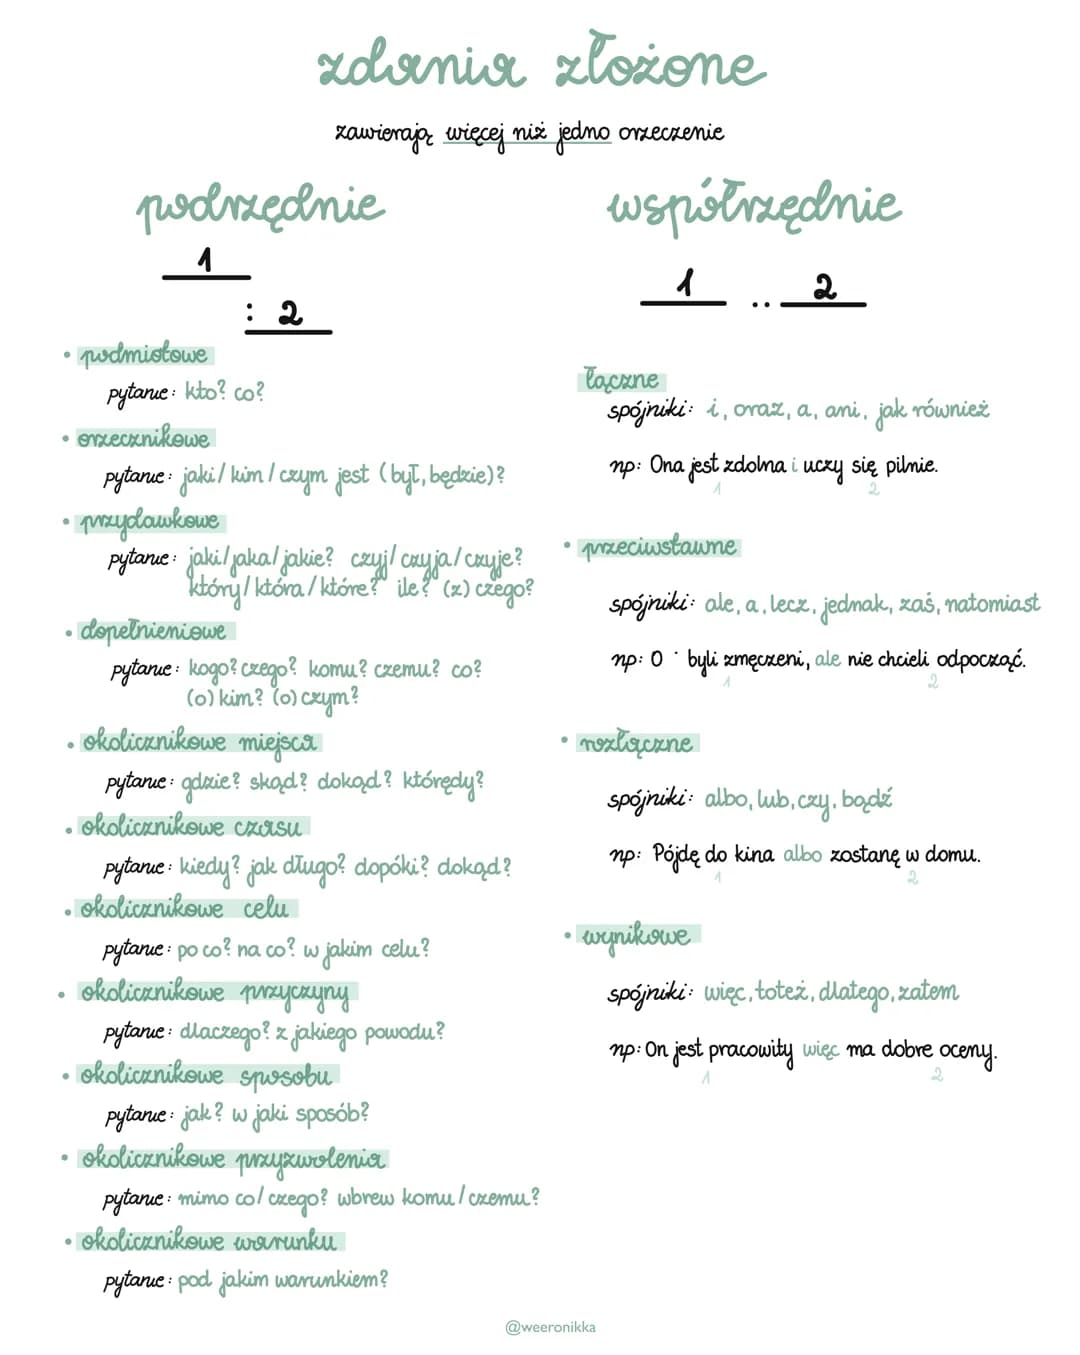 zdania złożone
zawierają więcej niż jedno orzeczenie
podrzędnie
1
: 2
• podmiotowe
pytanie: kto? co?
• orzecznikowe
pytanie: jaki/kim/czym jest (był, będzie)?
• przydawkowe
pytanie: jaki/jaka/jakie? czyj/czyja/czyje?
który/która/które? ile? (z) czego?
• dopełnieniowe
pytanie: kogo? czego? komu? czemu? co?
(o) kim? (o) czym?
• okolicznikowe miejsca
pytanie: gdzie? skąd? dokąd? którędy?
• okolicznikowe czasu
pytanie: kiedy? jak długo? dopóki? dokąd?
• okolicznikowe celu
pytanie: po co? na co? w jakim celu?
• okolicznikowe przyczyny
pytanie: dlaczego? z jakiego powodu?
• okolicznikowe sposobu
pytanie: jak? w jaki sposób?
• okolicznikowe przyzwolenia
pytanie: mimo co/czego? wbrew komu/czemu?
• okolicznikowe warunku
pytanie: pod jakim warunkiem?
współrzędnie
1 .. 2
łączne
spójniki: i, oraz, a, ani, jak również
np: Ona jest zdolna i uczy się pilnie.
1 2
• przeciwstawne
spójniki: ale, a, lecz, jednak, zaś, natomiast
np: O byli zmęczeni, ale nie chcieli odpocząć.
1 2
• rozłączne
spójniki: albo, lub, czy, bądź
np: Pójdę do kina albo zostanę w domu.
1 2
• wynikowe
spójniki: więc, toteż, dlatego, zatem
np: On jest pracowity więc ma dobre oceny.
1 2
@weeronikka